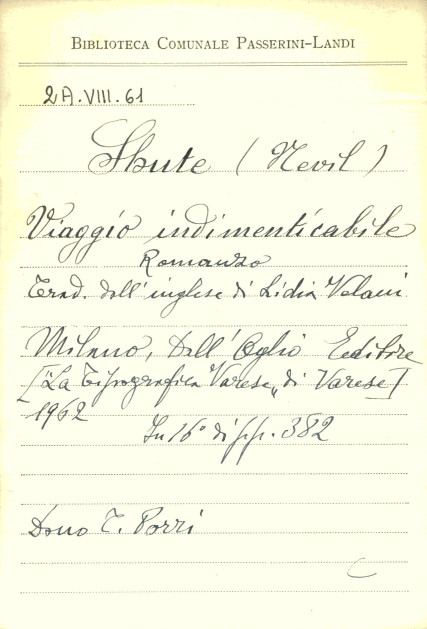 BIBLIOTECA COMUNALE PASSERINI-LANDI
2A.VIII.61
Shute (Nevil)
Viaggio indimenticabile
Romanzo
Trad. dall'inglese di Lidia Velani
Milano, Dall'Oglio Editore
["La Tipografica Varese„ di Varese]
1962
In 16° di pp. 382
Dono T. Porri
C